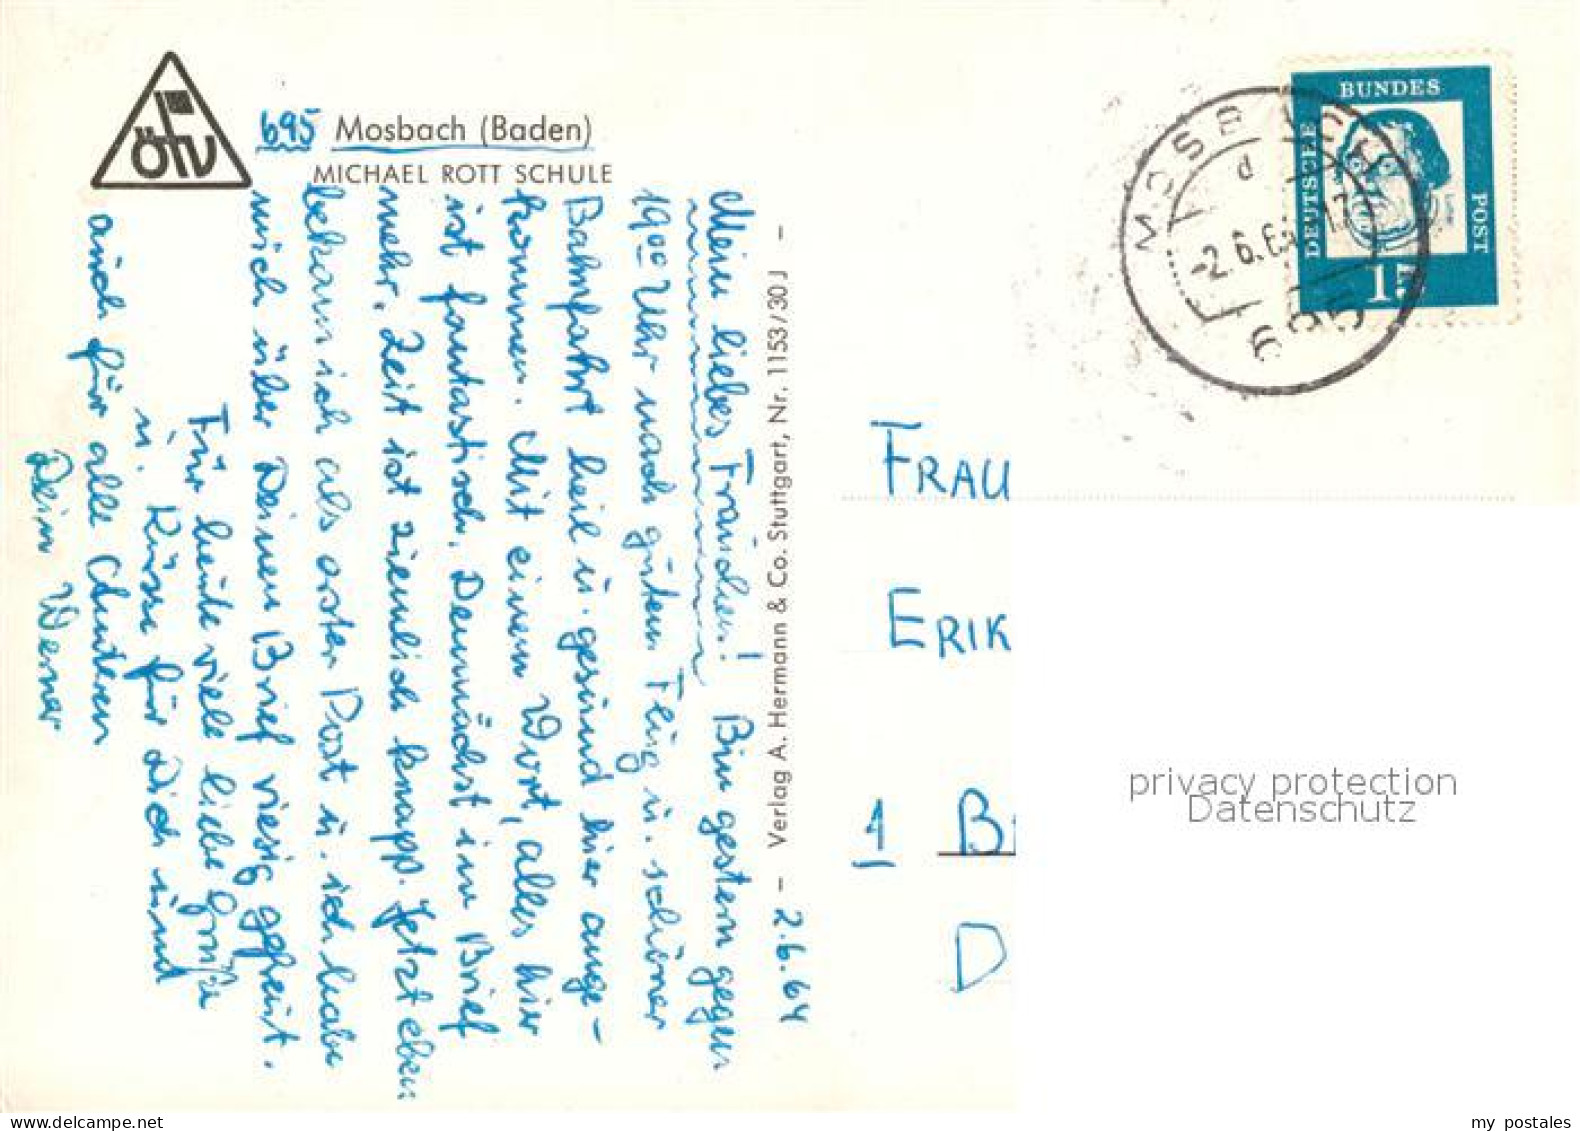 695 Mosbach (Baden)
MICHAEL ROTT SCHULE
ötv
2.6.64
Mein liebes Frauchen! Bin gestern gegen
19oo Uhr nach gutem Flug u. schöner
Bahnfahrt heil u. gesund hier ange-
kommen. Mit einem Wort, alles hier
ist fantastisch. Demnächst im Brief
mehr. Zeit ist ziemlich knapp. Jetzt eben
bekam ich als erster Post u. ich habe
mich über Deinen Brief riesig gefreut.
Für heute viele liebe Grüße
u. Küsse für Dich und
auch für alle
Dein Werner
– Verlag A. Hermann & Co. Stuttgart, Nr. 1153/30 J –
MOSBACH
d
-2.6.64
695
DEUTSCHE
BUNDES
POST
15
FRAU
ERIK
1 B
D
privacy protection
Datenschutz
my postales